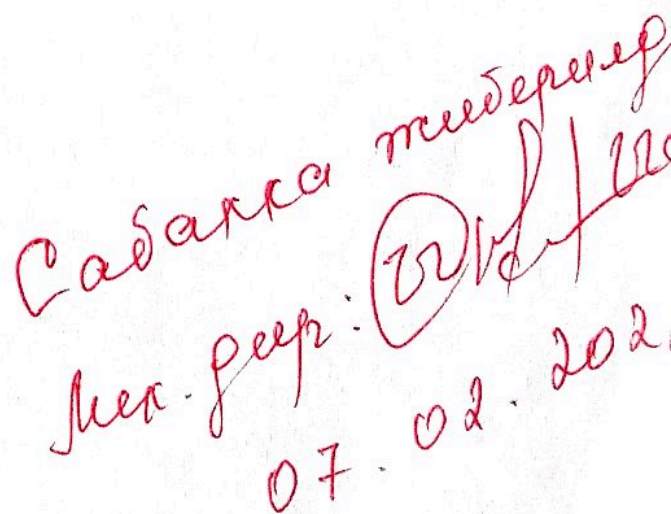 Сабакка жиберилд
Мек. дир:
07.02.202